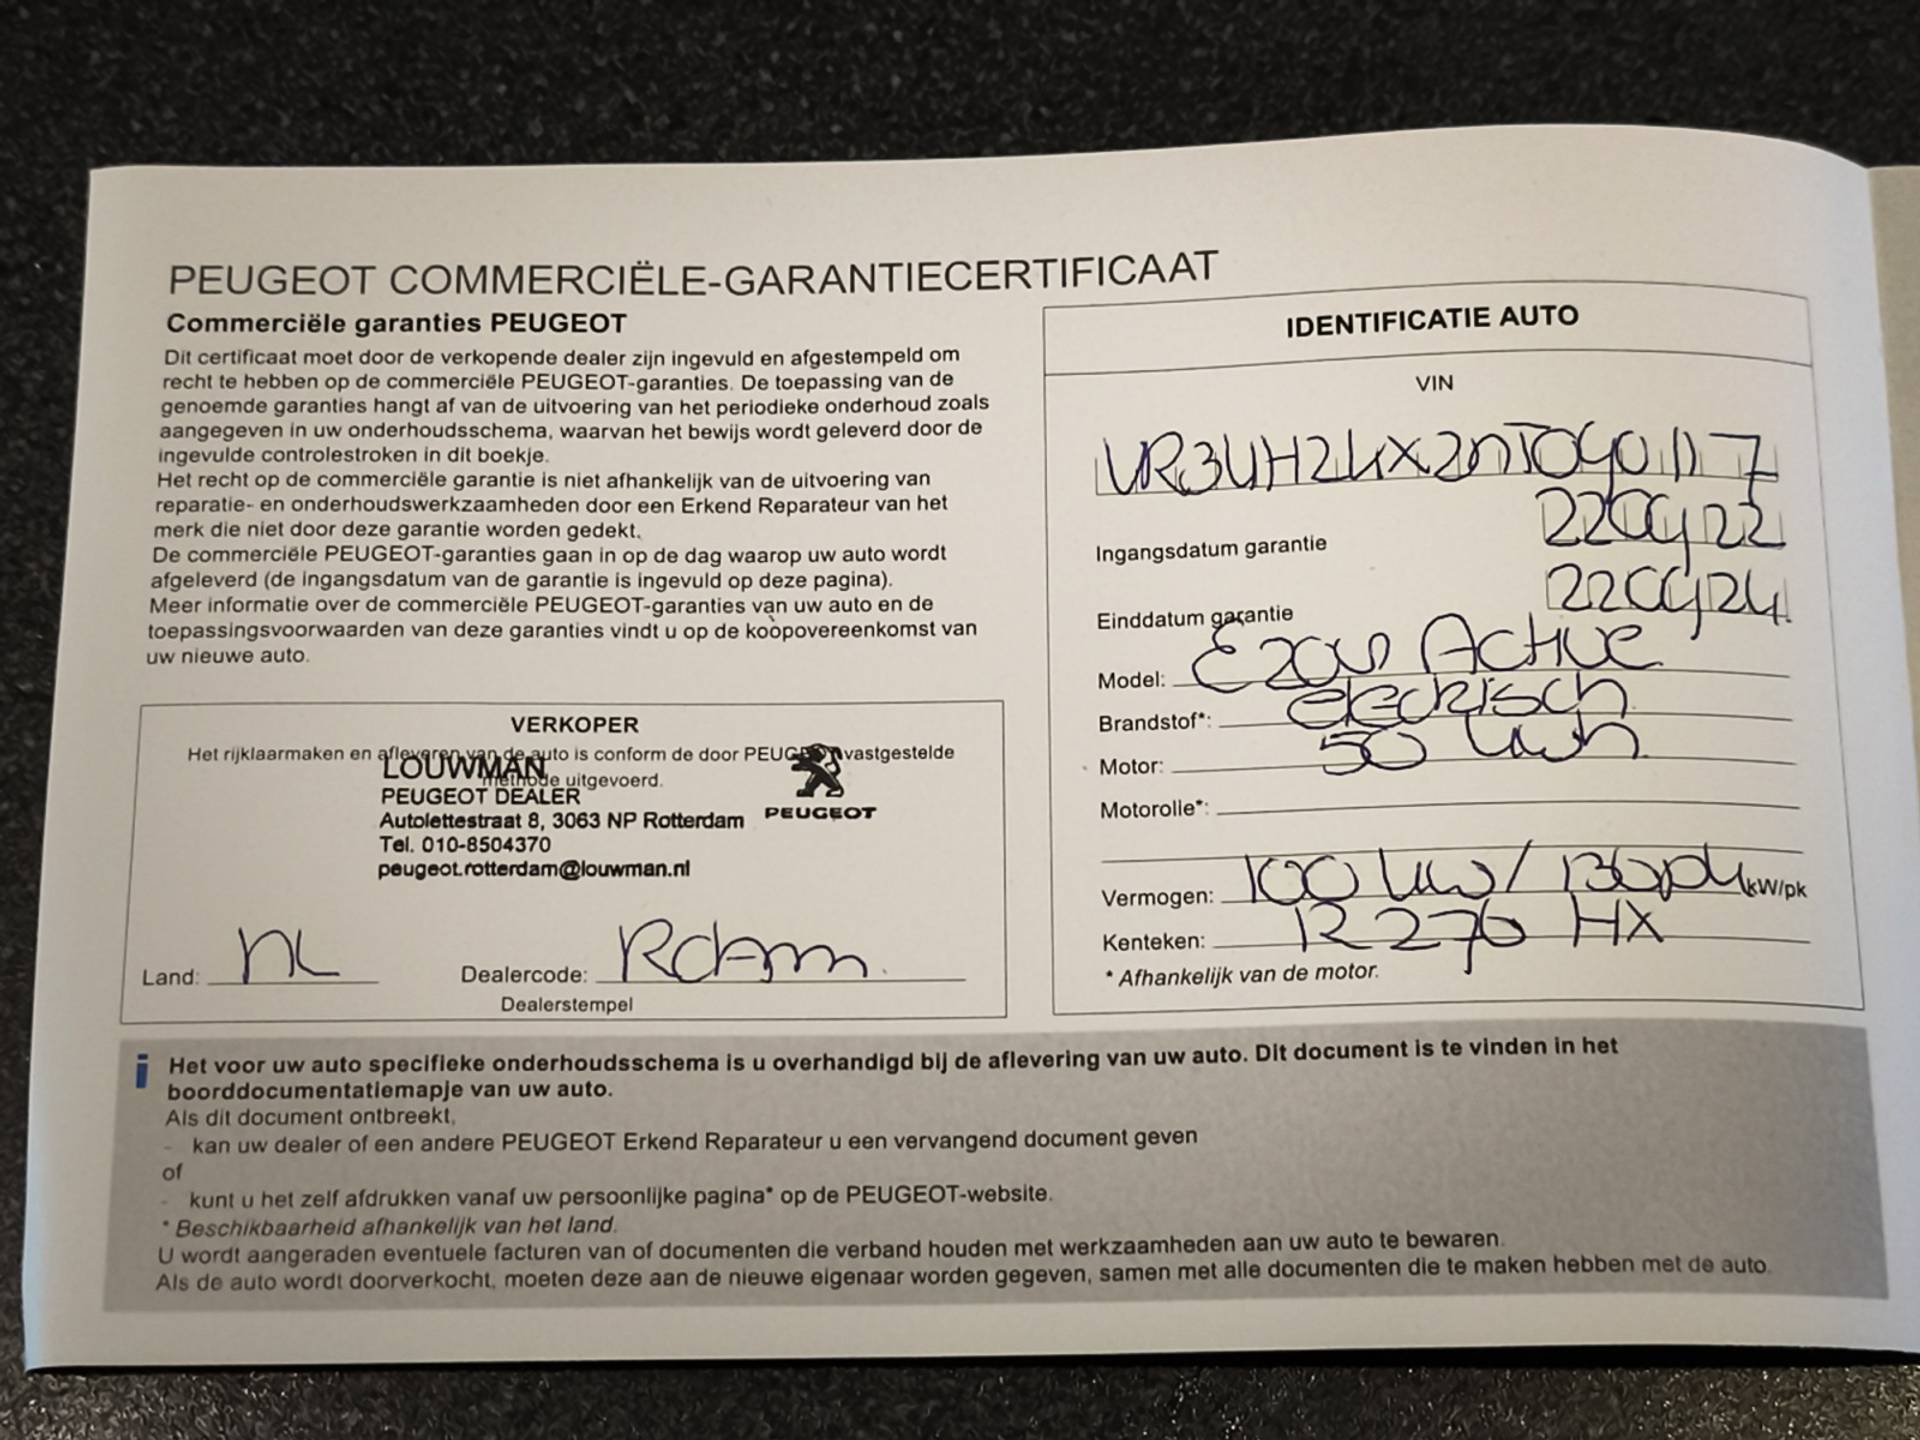 PEUGEOT COMMERCIËLE-GARANTIECERTIFICAAT
Commerciële garanties PEUGEOT
Dit certificaat moet door de verkopende dealer zijn ingevuld en afgestempeld om
recht te hebben op de commerciële PEUGEOT-garanties. De toepassing van de
genoemde garanties hangt af van de uitvoering van het periodieke onderhoud zoals
aangegeven in uw onderhoudsschema, waarvan het bewijs wordt geleverd door de
ingevulde controlestroken in dit boekje.
Het recht op de commerciële garantie is niet afhankelijk van de uitvoering van
reparatie- en onderhoudswerkzaamheden door een Erkend Reparateur van het
merk die niet door deze garantie worden gedekt.
De commerciële PEUGEOT-garanties gaan in op de dag waarop uw auto wordt
afgeleverd (de ingangsdatum van de garantie is ingevuld op deze pagina).
Meer informatie over de commerciële PEUGEOT-garanties van uw auto en de
toepassingsvoorwaarden van deze garanties vindt u op de koopovereenkomst van
uw nieuwe auto.
VERKOPER
Het rijklaarmaken en afleveren van de auto is conform de door PEUGEOT vastgestelde
methode uitgevoerd.
LOUWMAN
PEUGEOT DEALER
Autolettestraat 8, 3063 NP Rotterdam
Tel. 010-8504370
peugeot.rotterdam@louwman.nl
PEUGEOT
Land: NL
Dealercode: Rdam
Dealerstempel
IDENTIFICATIE AUTO
VIN
Ingangsdatum garantie 220922
Einddatum garantie 220924
Model: E208 Active
Brandstof*: elektrisch
Motor: 50 kwh
Motorolle*:
Vermogen: 100 kW / 136pk kW/pk
Kenteken: R 276 HX
* Afhankelijk van de motor.
i Het voor uw auto specifieke onderhoudsschema is u overhandigd bij de aflevering van uw auto. Dit document is te vinden in het
boorddocumentatiemapje van uw auto.
Als dit document ontbreekt,
- kan uw dealer of een andere PEUGEOT Erkend Reparateur u een vervangend document geven
of
- kunt u het zelf afdrukken vanaf uw persoonlijke pagina* op de PEUGEOT-website.
* Beschikbaarheid afhankelijk van het land.
U wordt aangeraden eventuele facturen van of documenten die verband houden met werkzaamheden aan uw auto te bewaren.
Als de auto wordt doorverkocht, moeten deze aan de nieuwe eigenaar worden gegeven, samen met alle documenten die te maken hebben met de auto.